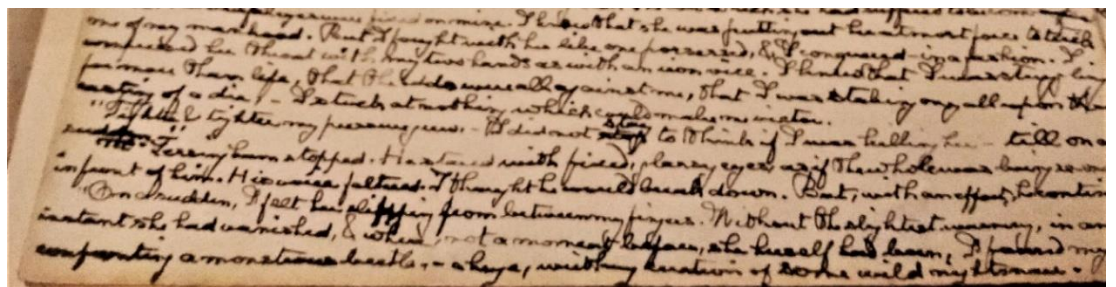 me of my manhood. But I fought with her like one possessed, & I conquered in a fashion. I
compressed her throat with my two hands as with an iron vice. I knew that I was struggling
for more than life, that the odds were all against me, that I was staking my all upon the
casting of a die, - I stuck at nothing which could make me victor.
"Tighter & tighter my pressure grew. - I did not stay to think if I was killing her - till on a
sudden -"
Lessingham stopped. He stared with fixed, glassy eyes, as if the whole was being re
in front of him. His voice faltered. I thought he would break down. But, with an effort, he contin
"On a sudden, I felt her slipping from between my fingers. Without the slightest warning, in an
instant she had vanished, & where, not a moment before, she herself had been, I found my
confronting a monstrous beetle, - a huge, writhing creation of some wild nightmare.